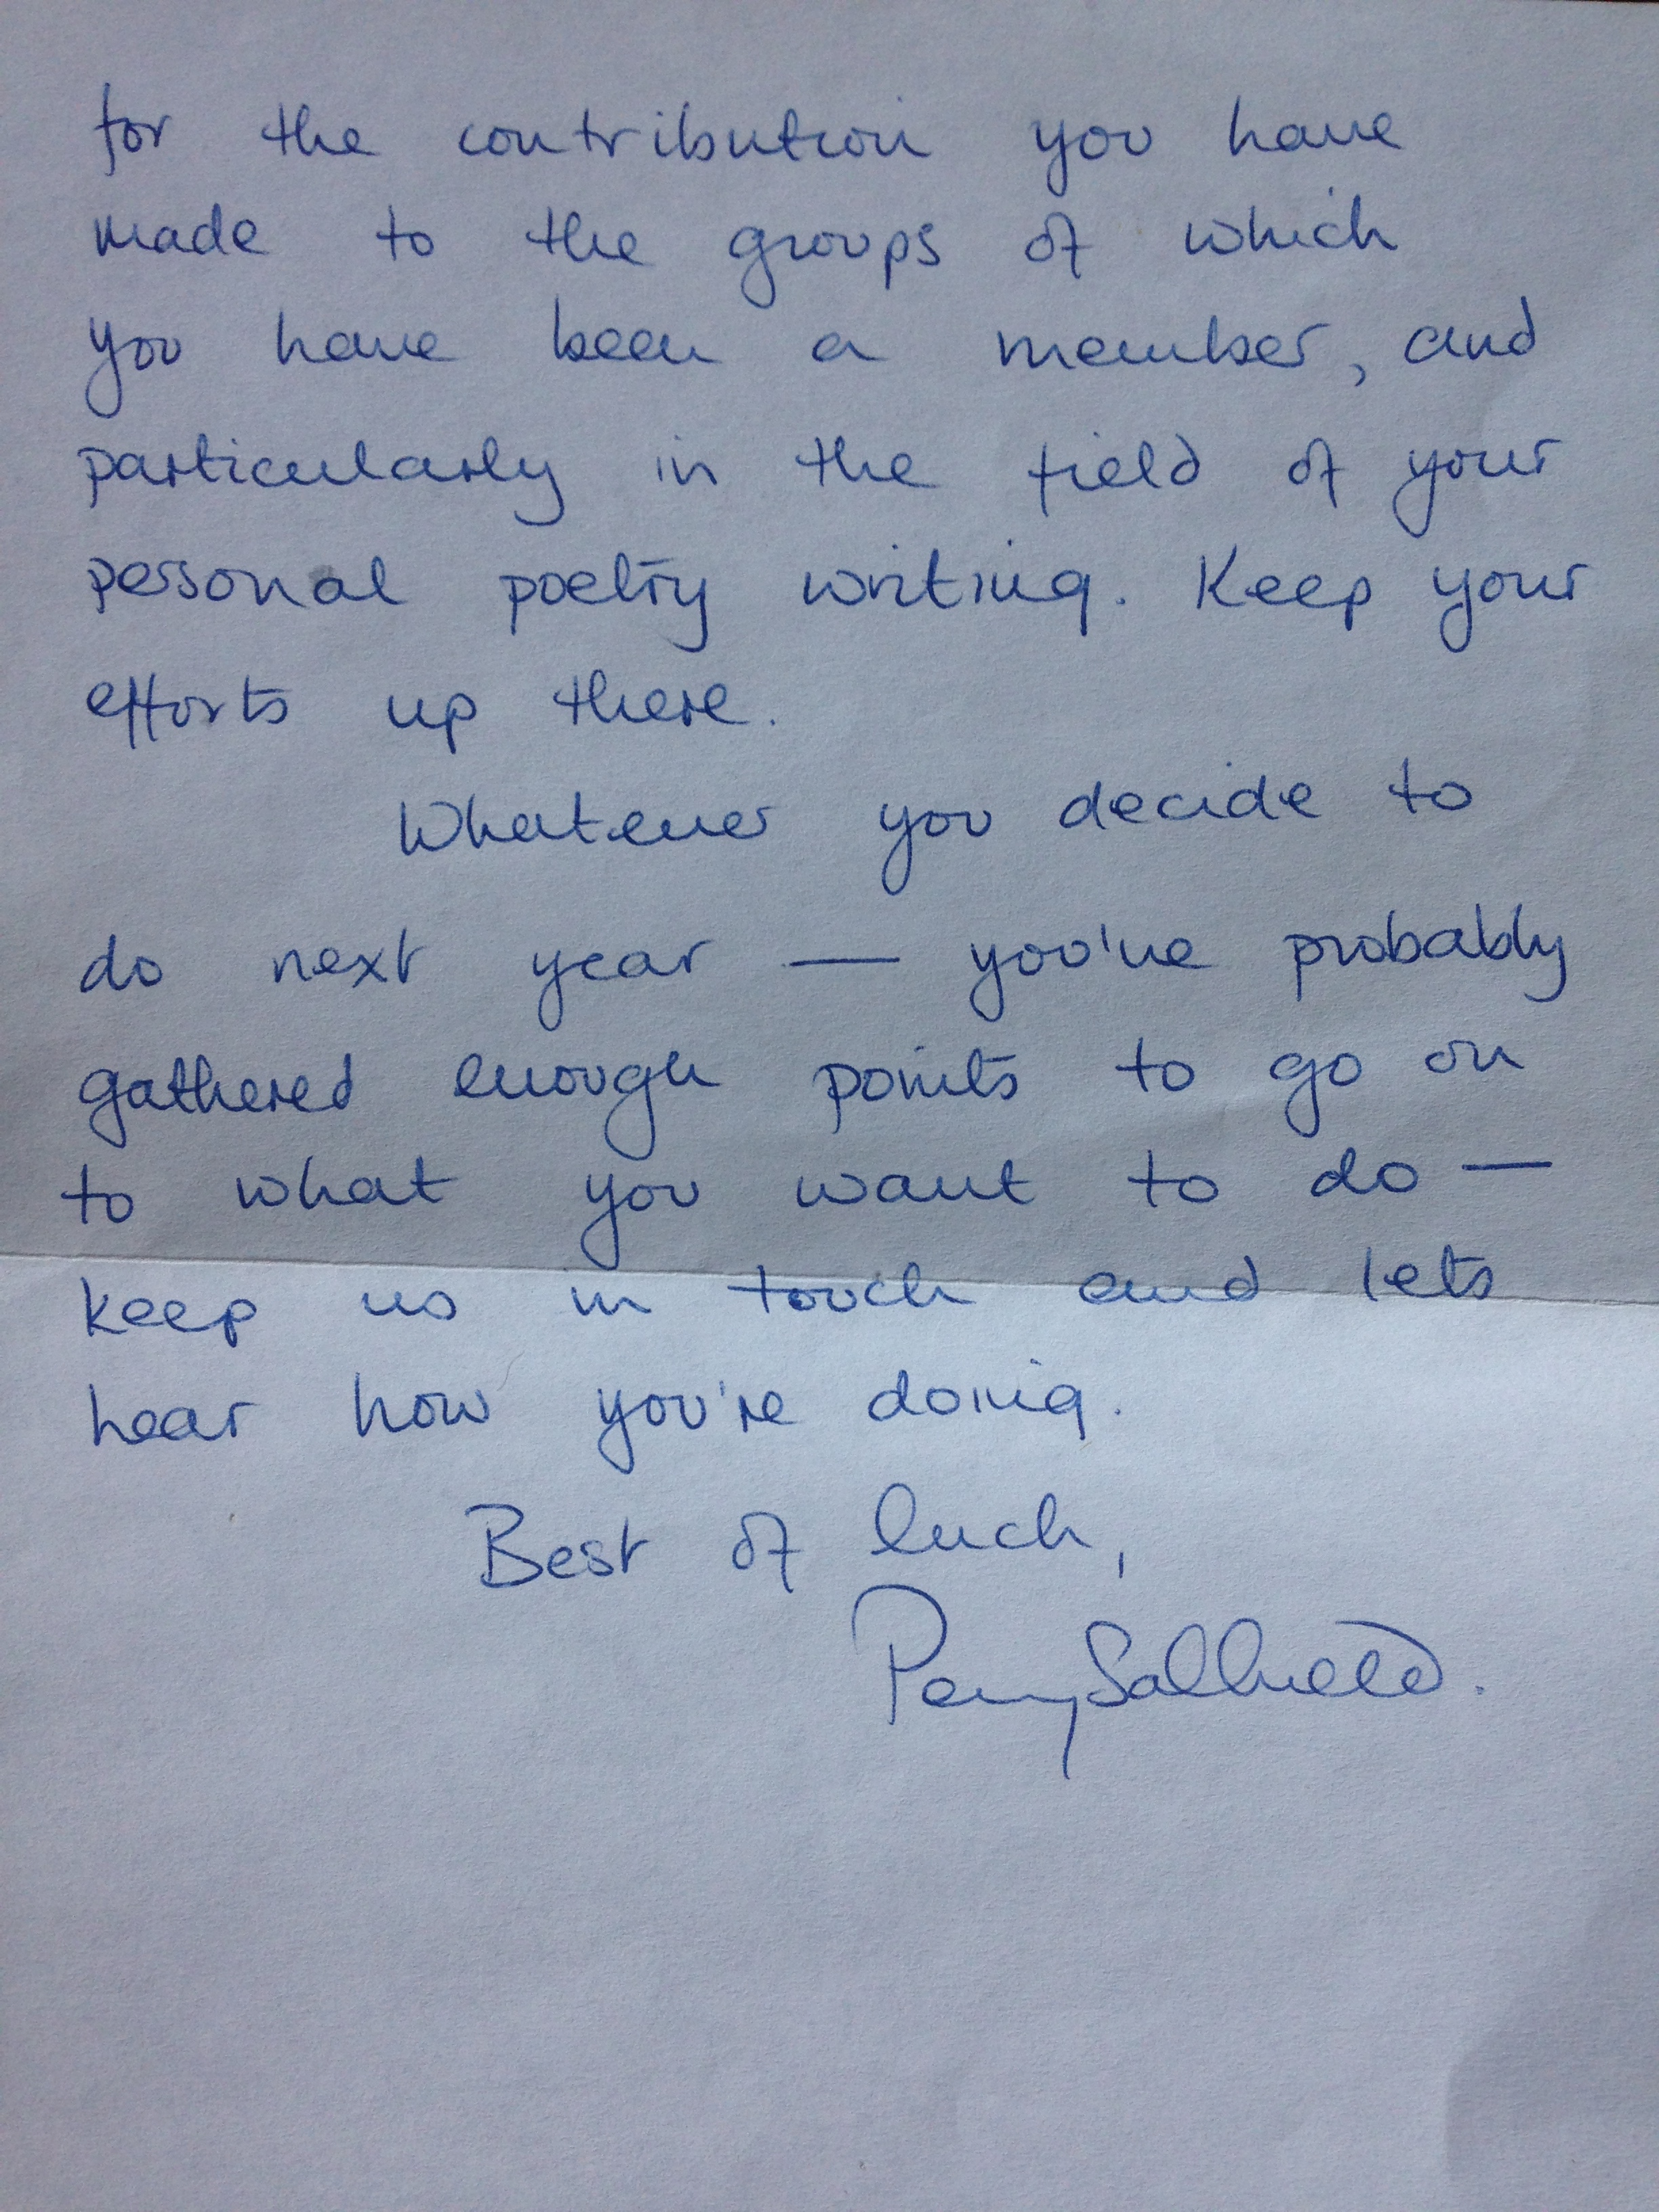 for the contribution you have
made to the groups of which
you have been a member, and
particularly in the field of your
personal poetry writing. Keep your
efforts up there.
Whatever you decide to
do next year — you've probably
gathered enough points to go on
to what you want to do —
keep us in touch and lets
hear how you're doing.
Best of luck,
Penny